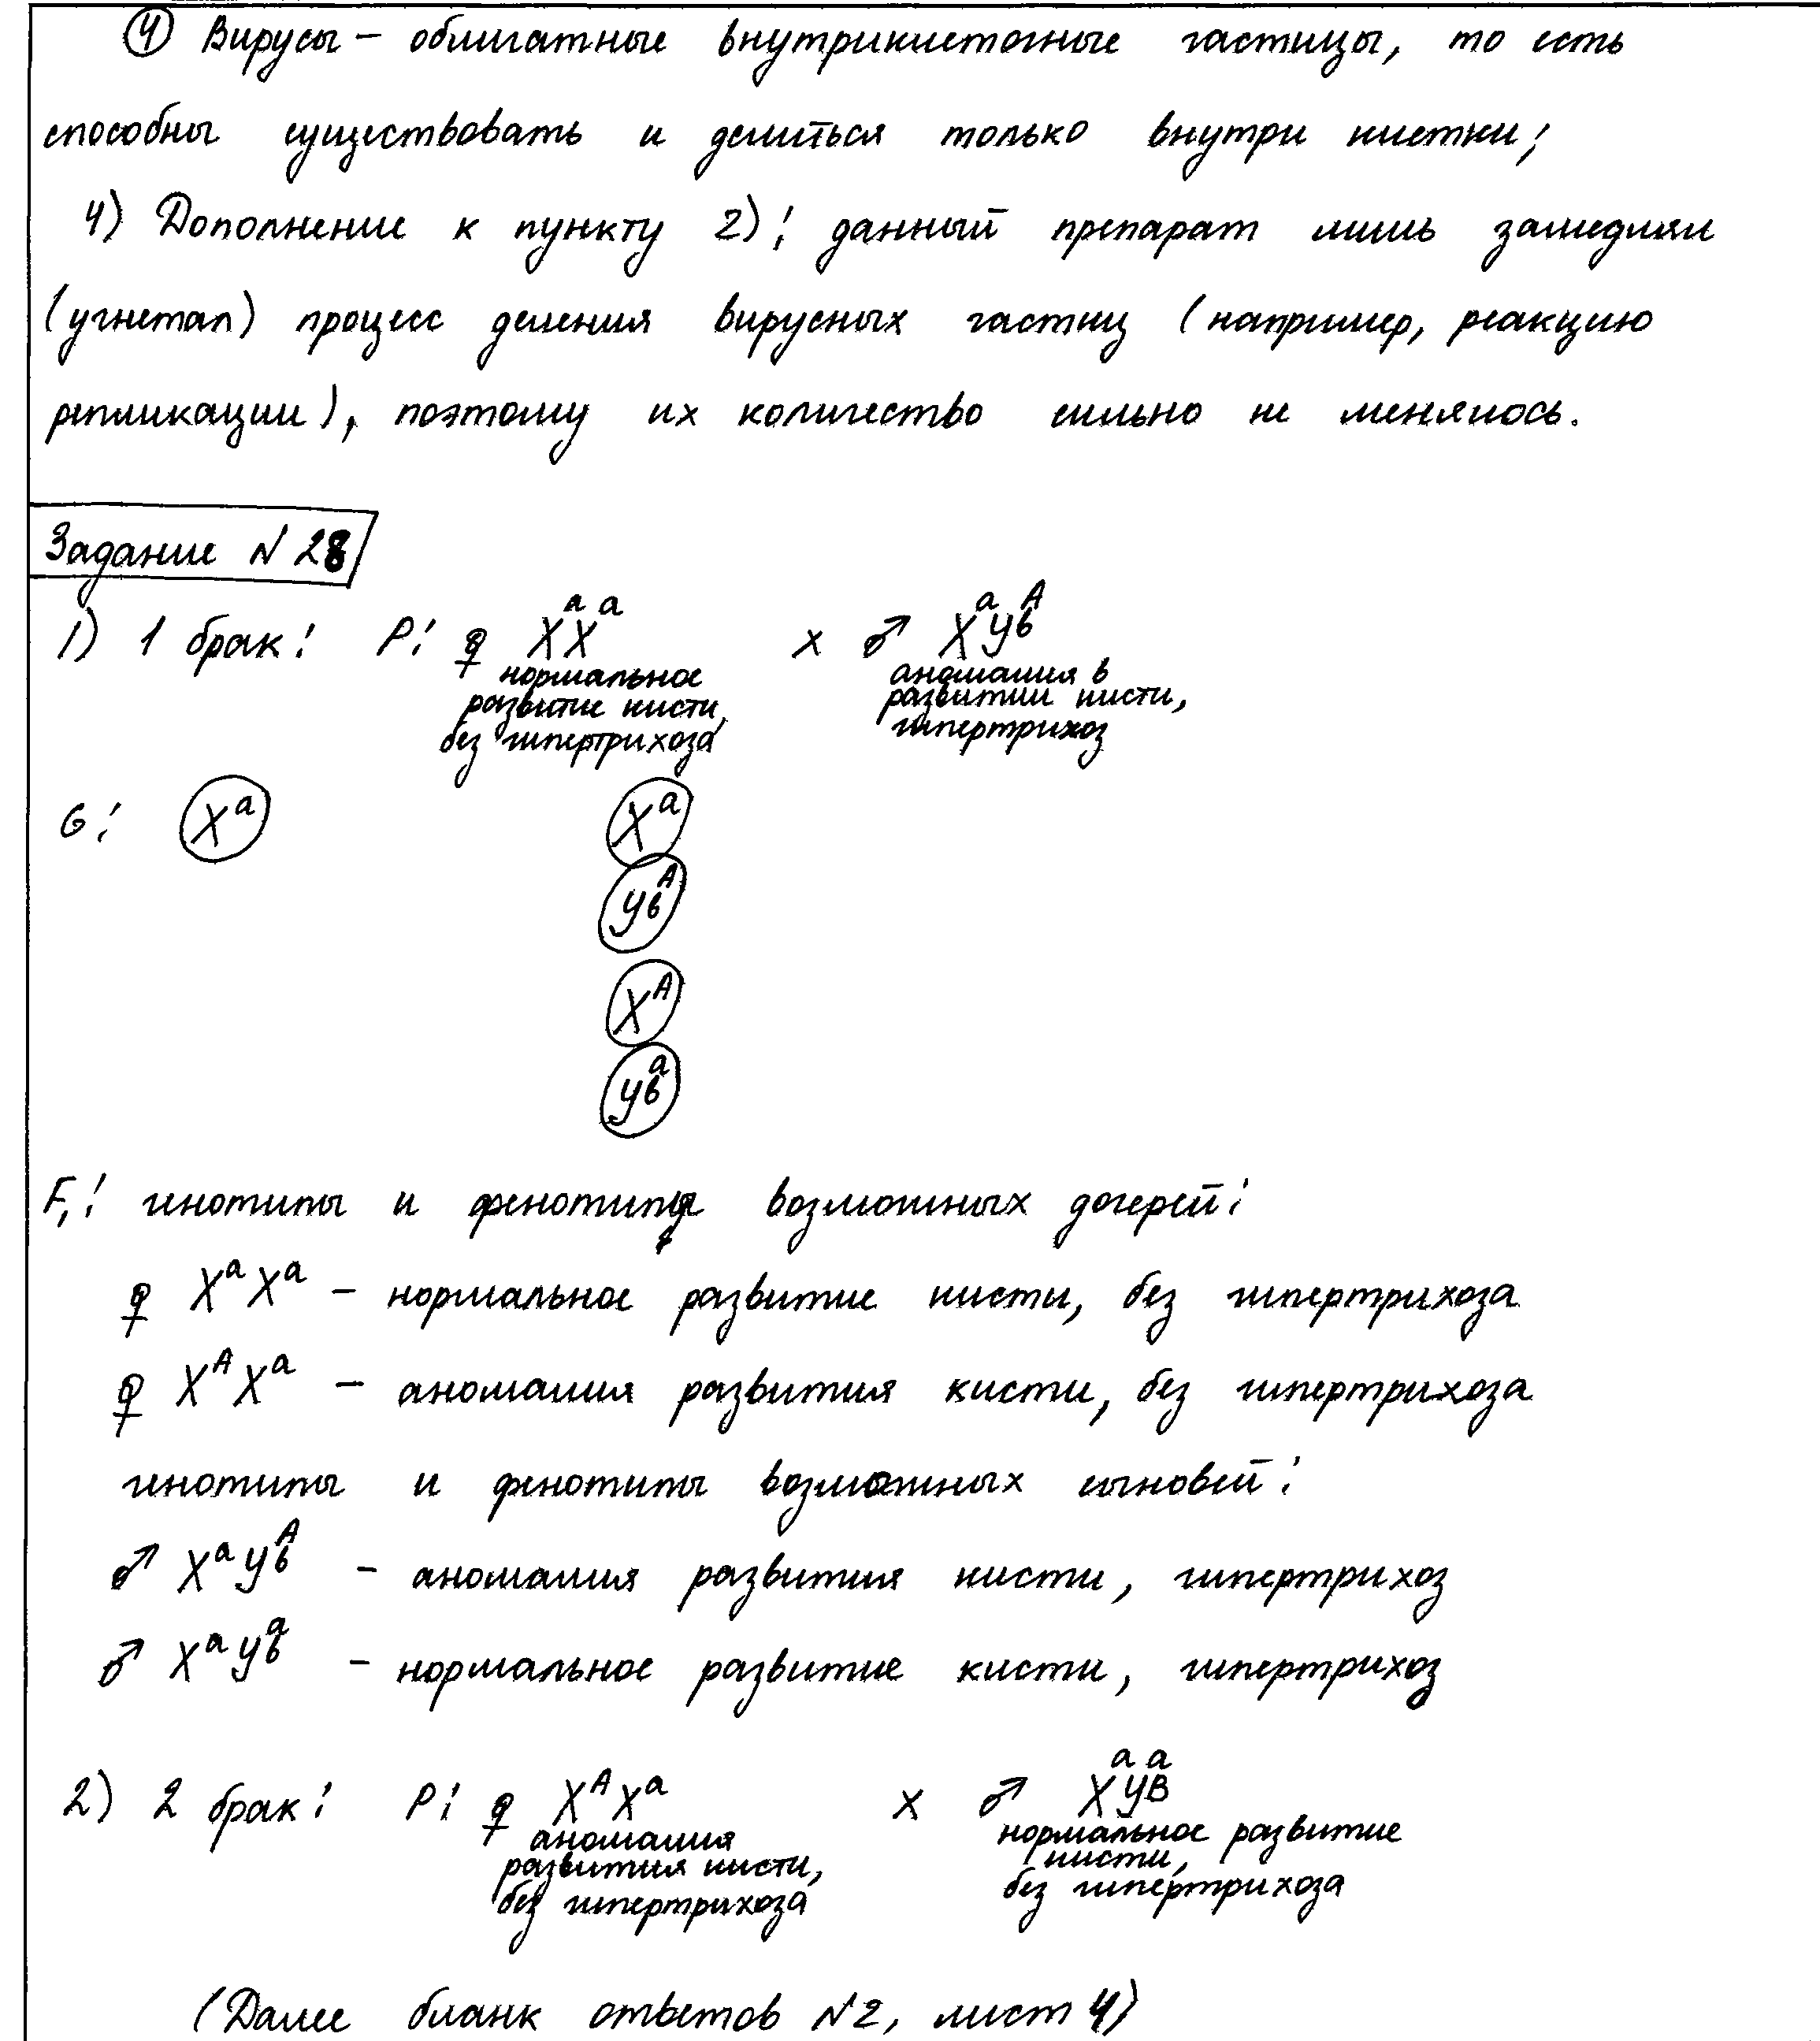 ④ Вирусы – облигатные внутриклеточные частицы, то есть
способны существовать и делиться только внутри клетки;
4) Дополнение к пункту 2): данный препарат лишь замедлял
(угнетал) процесс деления вирусных частиц (например, реакцию
репликации), поэтому их количество сильно не менялось.
Задание N 28
1) 1 брак: P: ♀ XᵃXᵃ x ♂ XᵃYbᴬ
нормальное развитие кисти, без гипертрихоза
аномалия в развитии кисти, гипертрихоз
G: Xᵃ Xᵃ
Ybᴬ
Xᴬ
Ybᵃ
F₁: генотипы и фенотипы возможных дочерей:
♀ XᵃXᵃ – нормальное развитие кисти, без гипертрихоза
♀ XᴬXᵃ – аномалия развития кисти, без гипертрихоза
генотипы и фенотипы возможных сыновей:
♂ XᵃYbᴬ – аномалия развития кисти, гипертрихоз
♂ XᵃYbᵃ – нормальное развитие кисти, гипертрихоз
2) 2 брак: P: ♀ XᴬXᵃ x ♂ XᵃYBᵃ
аномалия развития кисти, без гипертрихоза
нормальное развитие кисти, без гипертрихоза
(Далее бланк ответов N2, лист 4)